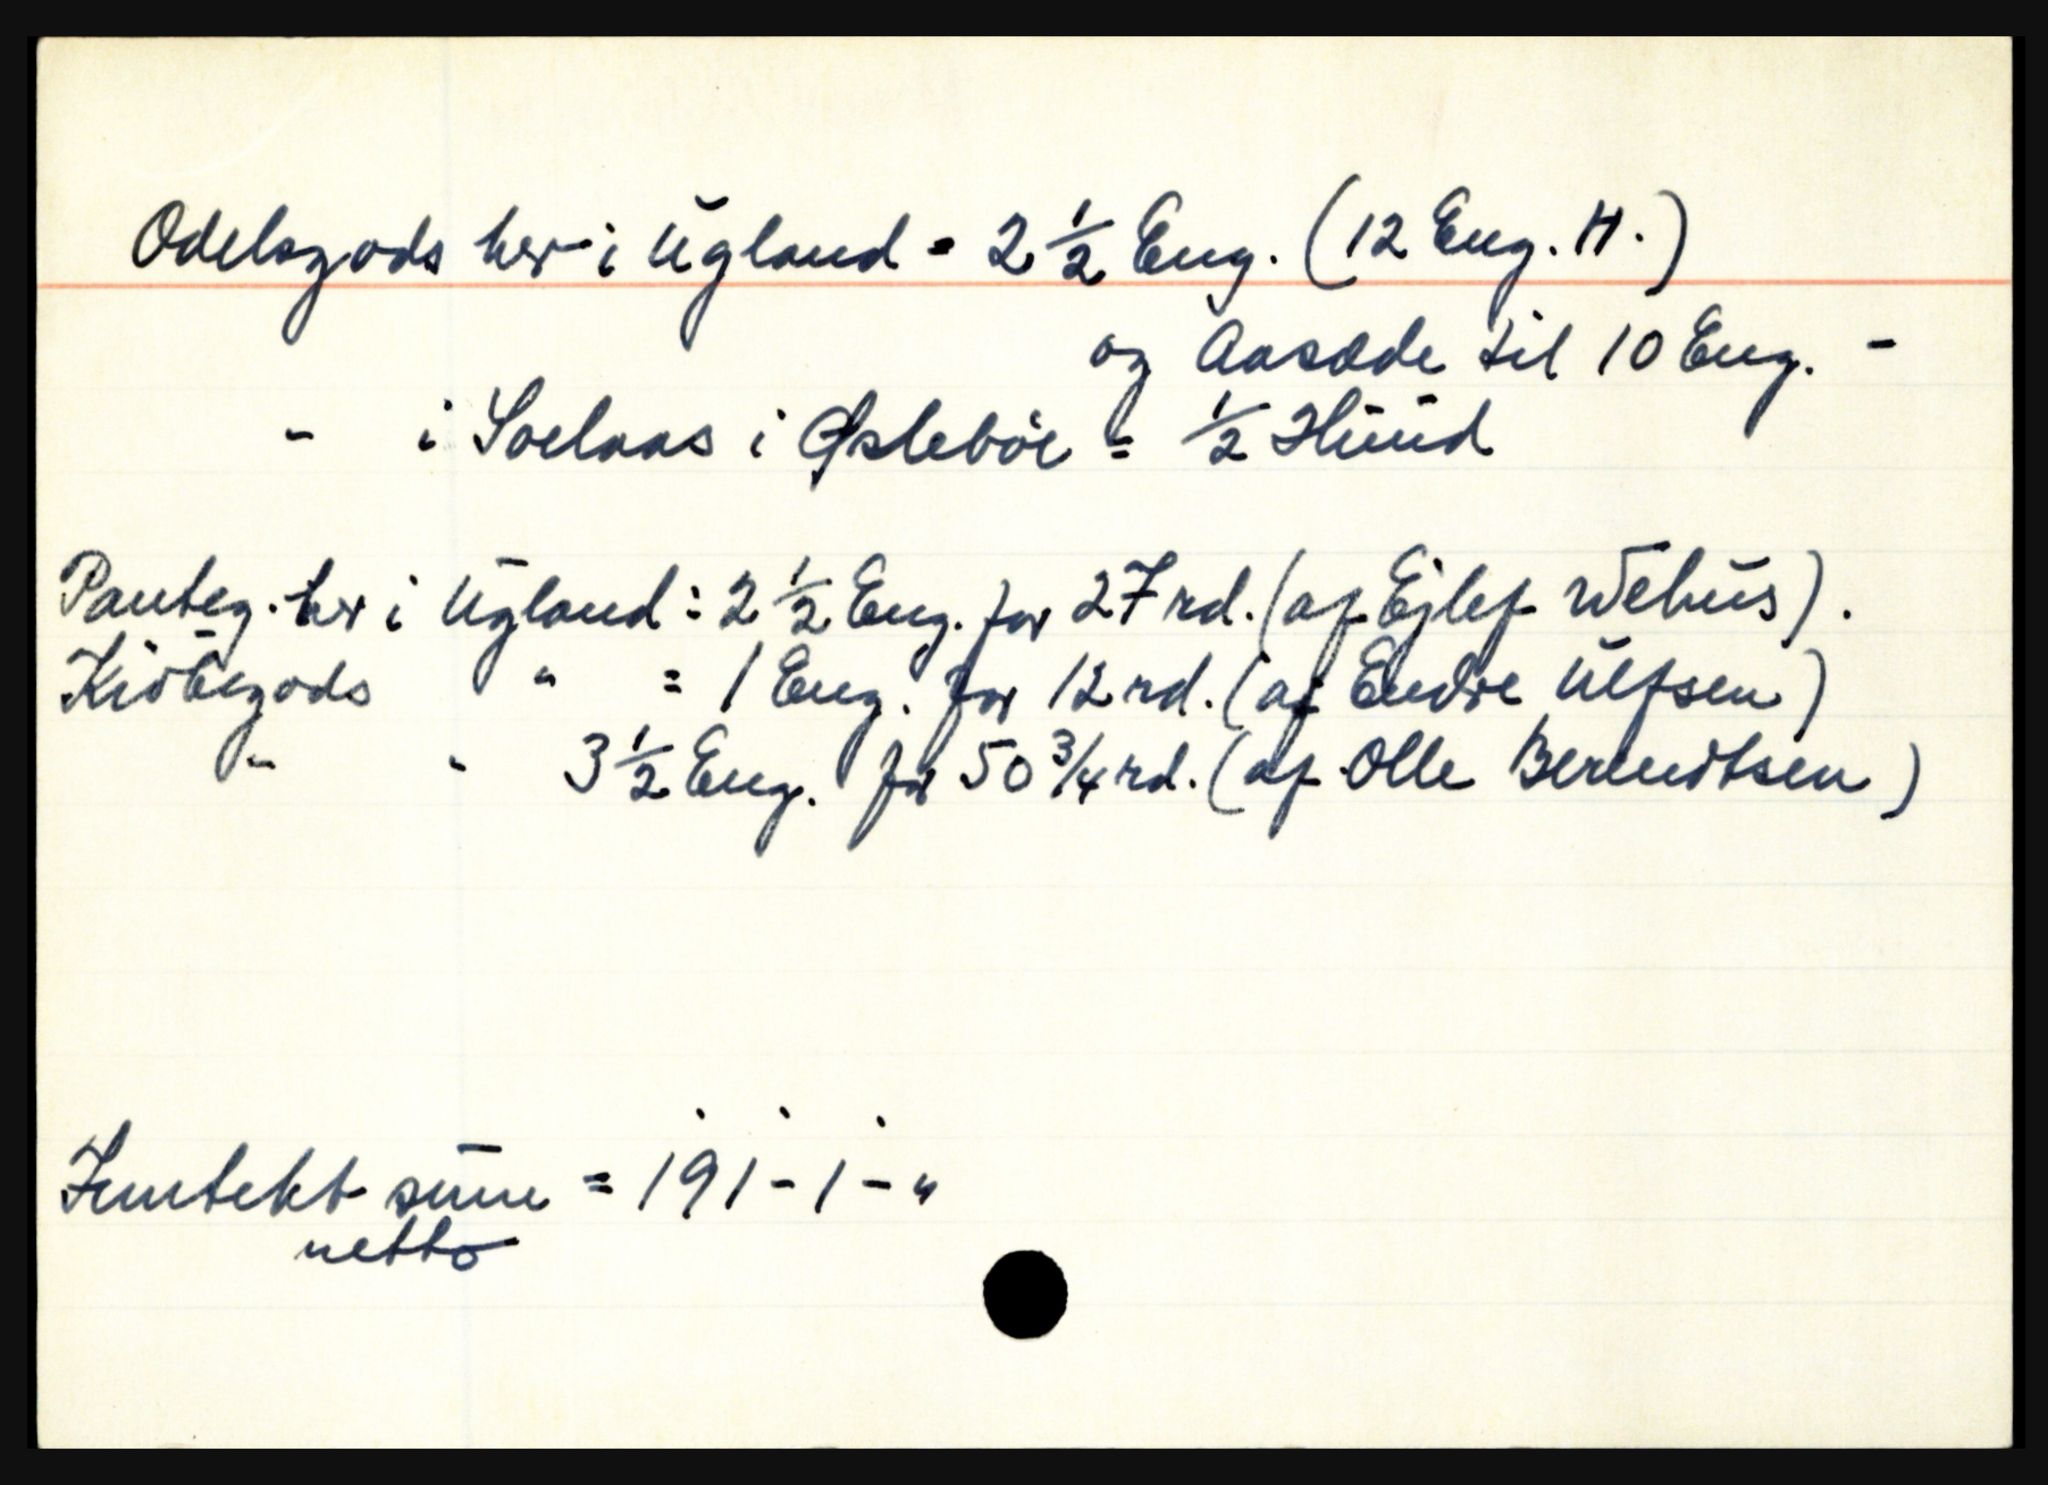 Odelsgods her i Ugland = 2 1/2 Eng. (12 Eng. H.)
og Aasæde til 10 Eng. -
- i Soelaas i Øslebøe = 1/2 Huud
Panteg. her i Ugland : 2 1/2 Eng. for 27 rd. (af Ejlef Wehus).
Kiöbegods " = 1 Eng. for 12 rd. (af Endre Ulfsen)
" " 3 1/2 Eng. for 50 3/4 rd. (af Olle Berendtsen)
sum = 191 - 1 - "
netto